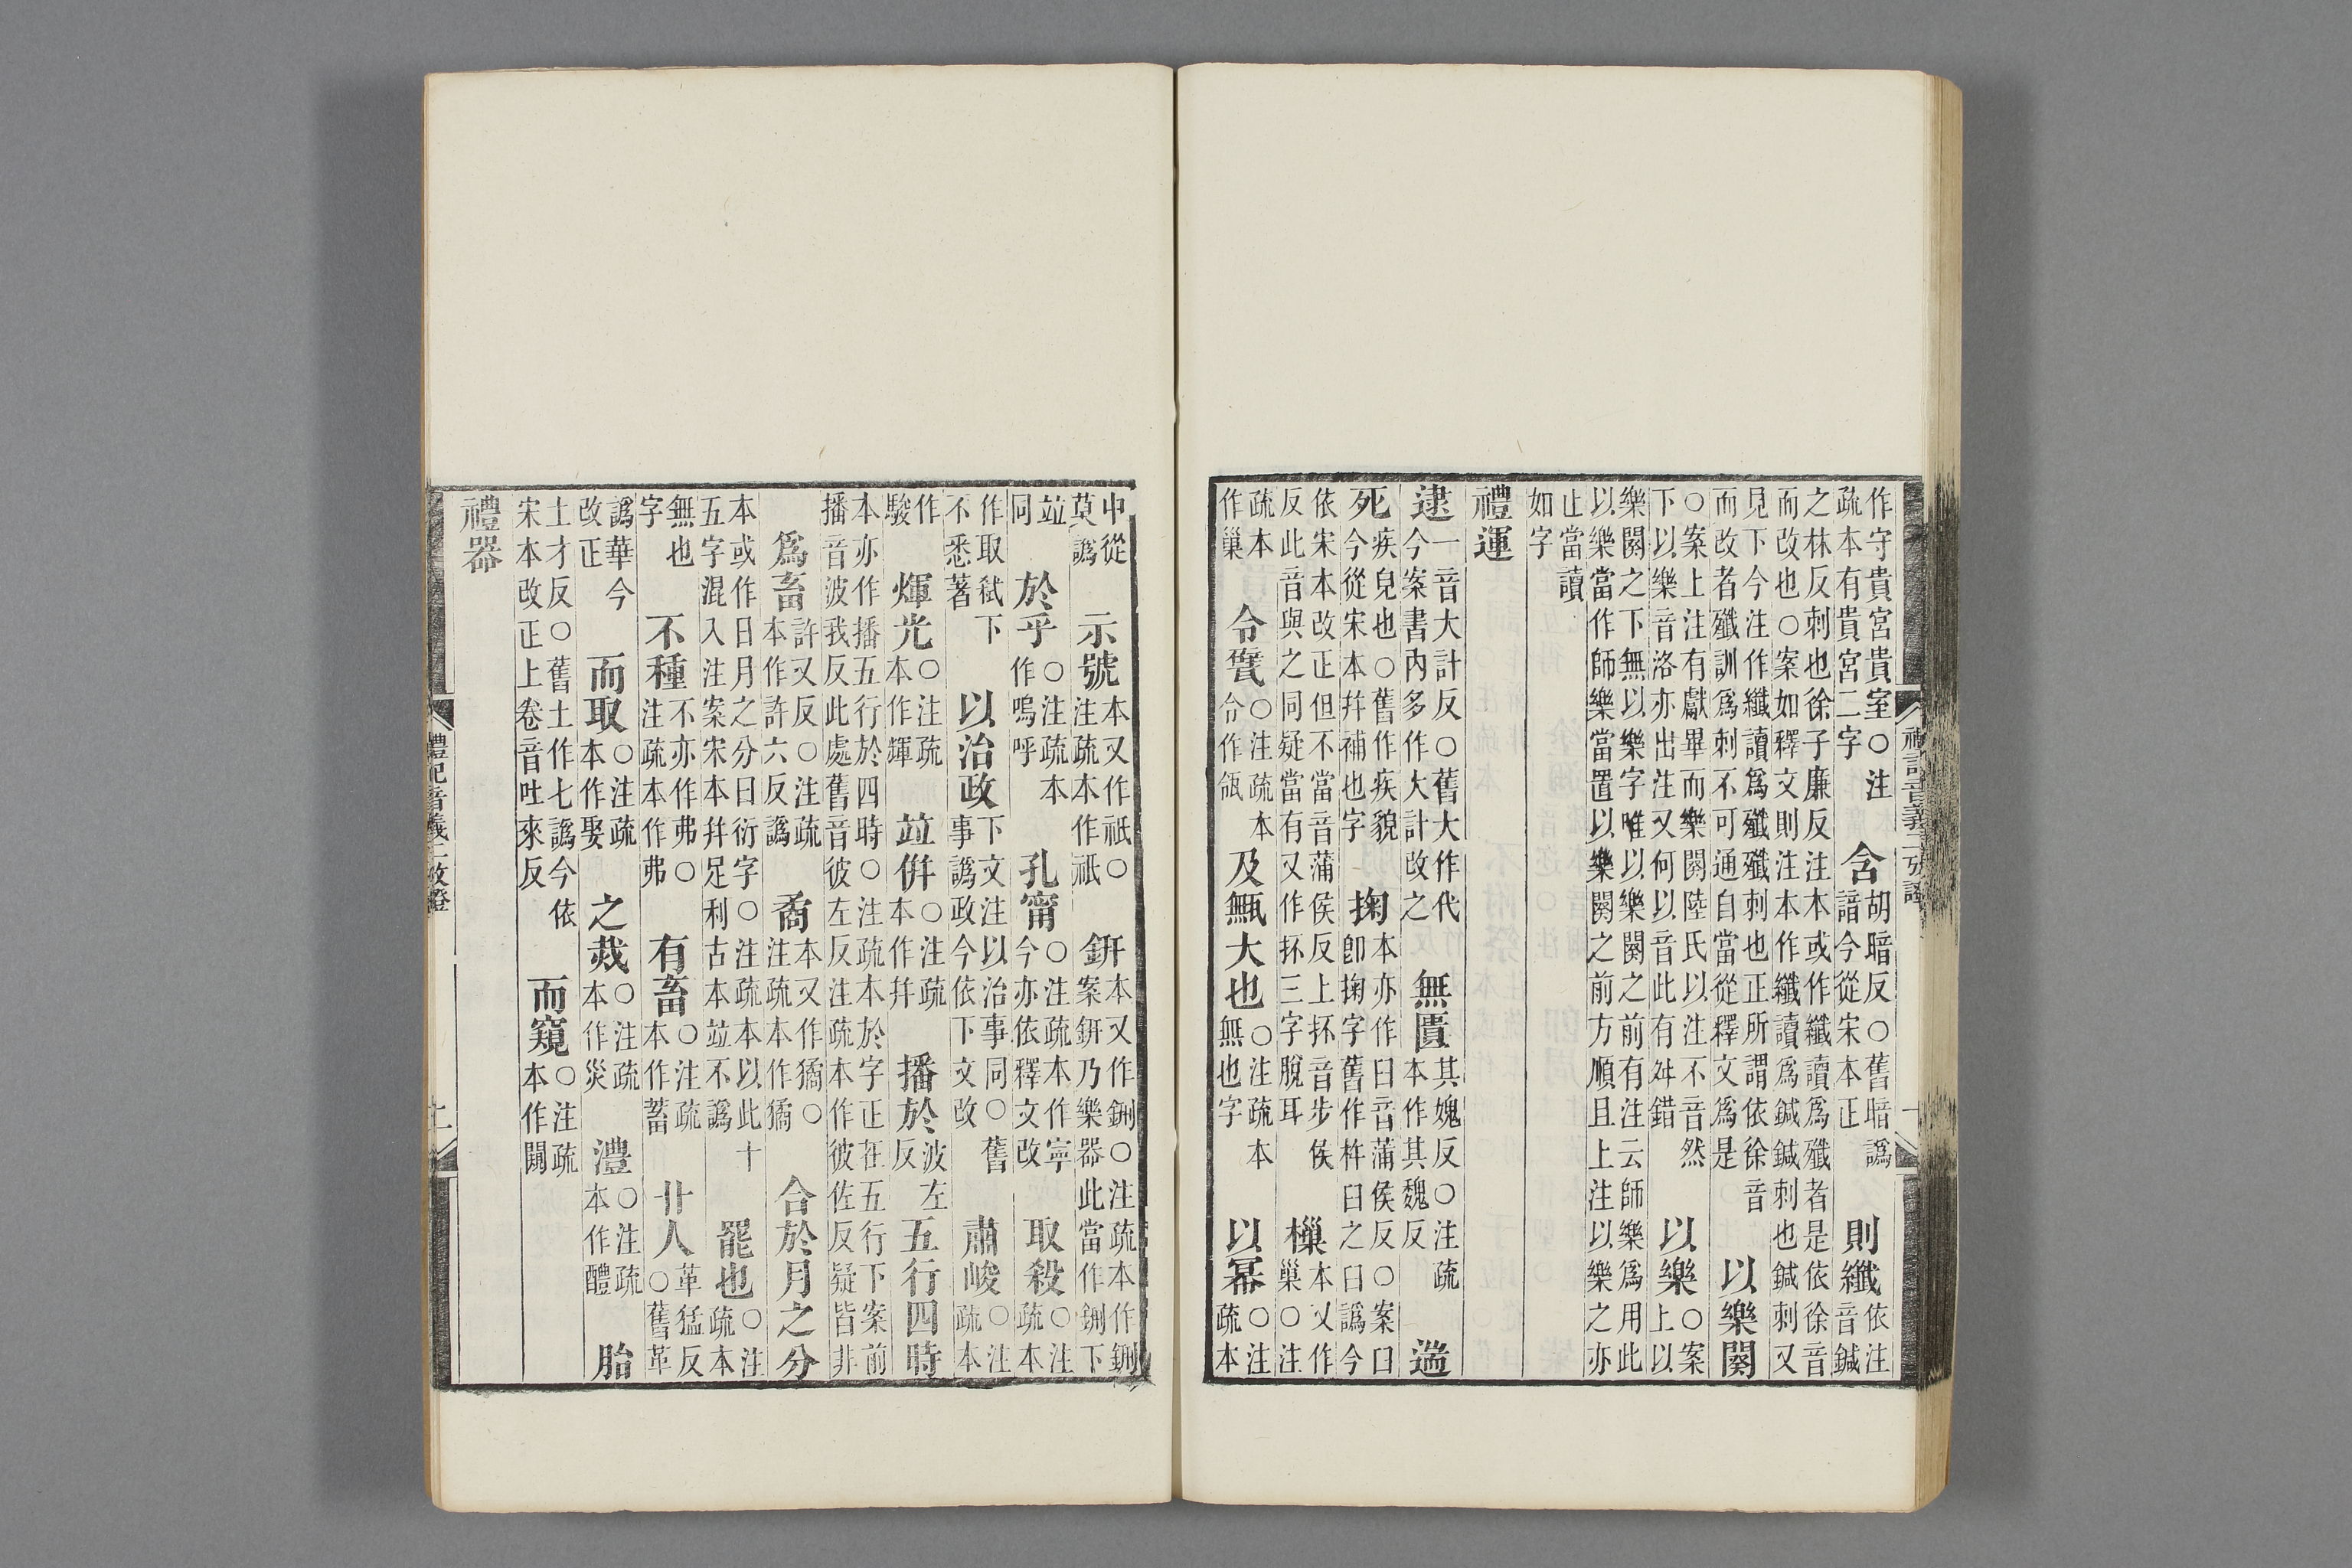 作守貴宮貴室○注疏本有貴宮二字 含胡暗反○舊暗譌諳今從宋本正 則纖依注音鍼
之林反刺也徐子廉反注本或作纖讀爲殲者是依徐音而改也○案如釋文則注本作纖讀爲鍼鍼刺也鍼刺又
見下今注作纖讀爲殲殲刺也正所謂依徐音而改者殲訓爲刺不可通自當從釋文爲是 以樂闋
○案上注有獻畢而樂闋陸氏以注不音然下以樂音洛亦出注又何以音此有舛錯 以樂○案上以
樂闋之下無以樂字唯以樂闋之前有注云師樂爲用此以樂當作師樂當置以樂闋之前方順且上注以樂之亦
止當讀如字
禮運
逮一音大計反○舊大作代今案書內多作大計改之 無匱其媿反○注疏本作其魏反 遄
死疾皃也○舊作疾貌今從宋本幷補也字 掬本亦作臼音蒲侯反○案臼卽掬字舊作杵臼之臼譌今
依宋本改正但不當音蒲侯反上抔音步侯反此音與之同疑當有又作抔三字脫耳 樔本又作巢○注
疏本作巢 令甓○注疏本令作瓴 及甒大也○注疏本無也字 以冪○注疏本
中從莫譌 示號本又作祇○注疏本作祇 鈃本又作鉶○注疏本作鉶案鈃乃樂器此當作鉶下
竝同 於乎○注疏本作嗚呼 孔甯○注疏本作寧今亦依釋文改 取殺○注疏本
作取弒下不悉著 以治政下文注以治事同○舊事譌政今依下文改 肅峻○注疏本
作駿 煇光○注疏本作輝 竝倂○注疏本作幷 播於波左反 五行四時
本亦作播五行於四時○注疏本於字正在五行下案前播音波我反此處舊音彼左反注疏本作彼佐反疑皆非
爲畜許又反○注疏本作許六反譌 矞本又作獝○注疏本作獝 合於月之分
本或作日月之分日衍字○注疏本以此十五字混入注案宋本幷足利古本竝不譌 罷也○注疏本
無也字 不種不亦作弗○注疏本作弗 有畜○注疏本作蓄 卝人革猛反○舊革
譌華今改正 而取○注疏本作娶 之烖○注疏本作災 澧○注疏本作醴 胎
土才反○舊土作七譌今依宋本改正上卷音吐來反 而窺○注疏本作闚
禮器
禮記音義二攷證